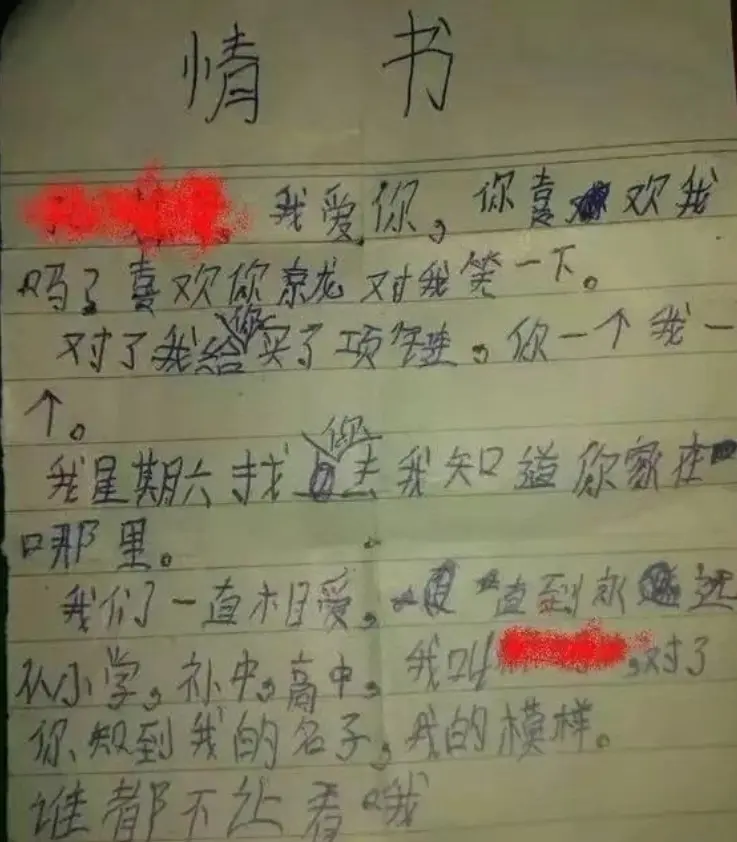 情书
我爱你,你喜欢我
吗?喜欢你京龙对我笑一下。
对了我给你买了项链,你一个我一
个。
我星期六找你去我知道你家在
哪里。
我们一直相爱,直到永远
从小学,补中,高中,我叫,对了
你知到我的名子,我的模样。
谁都不让看哦